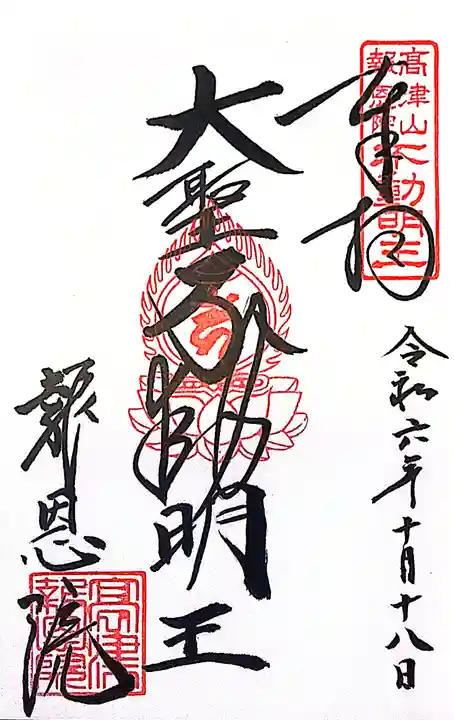 奉拝
高津山
報恩院不動明王
令和六年十月十八日
大聖不動明王
報恩院
高津山
報恩院